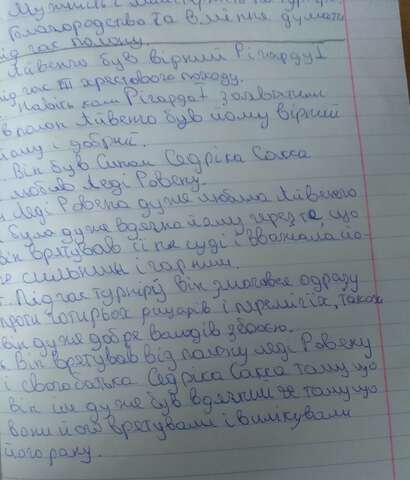 Мужність і майстерність на турнірі
Благородство та вміння думати
під час полону.
Айвенго був вірний Річарду I
під час III хрестового походу.
Навіть коли Річарда I захватили
в полон Айвенго був йому вірний
йому і добрий.
Він був Сином Седріка Сакса
любив Леді Ровену.
Леді Ровена дуже любила Айвенго
була дуже вдячна йому через те, що
він врятував її на суді і вважала йо-
го сильним і гарним.
Під час турніру він змагався одразу
проти чотирьох рицарів і переміг їх, також
він дуже добре володів зброєю.
Він врятував від полону леді Ровену
і свого батька Седріка Сакса тому що
він їм дуже був вдячний за тому що
вони його врятували і вилікували
його рану.